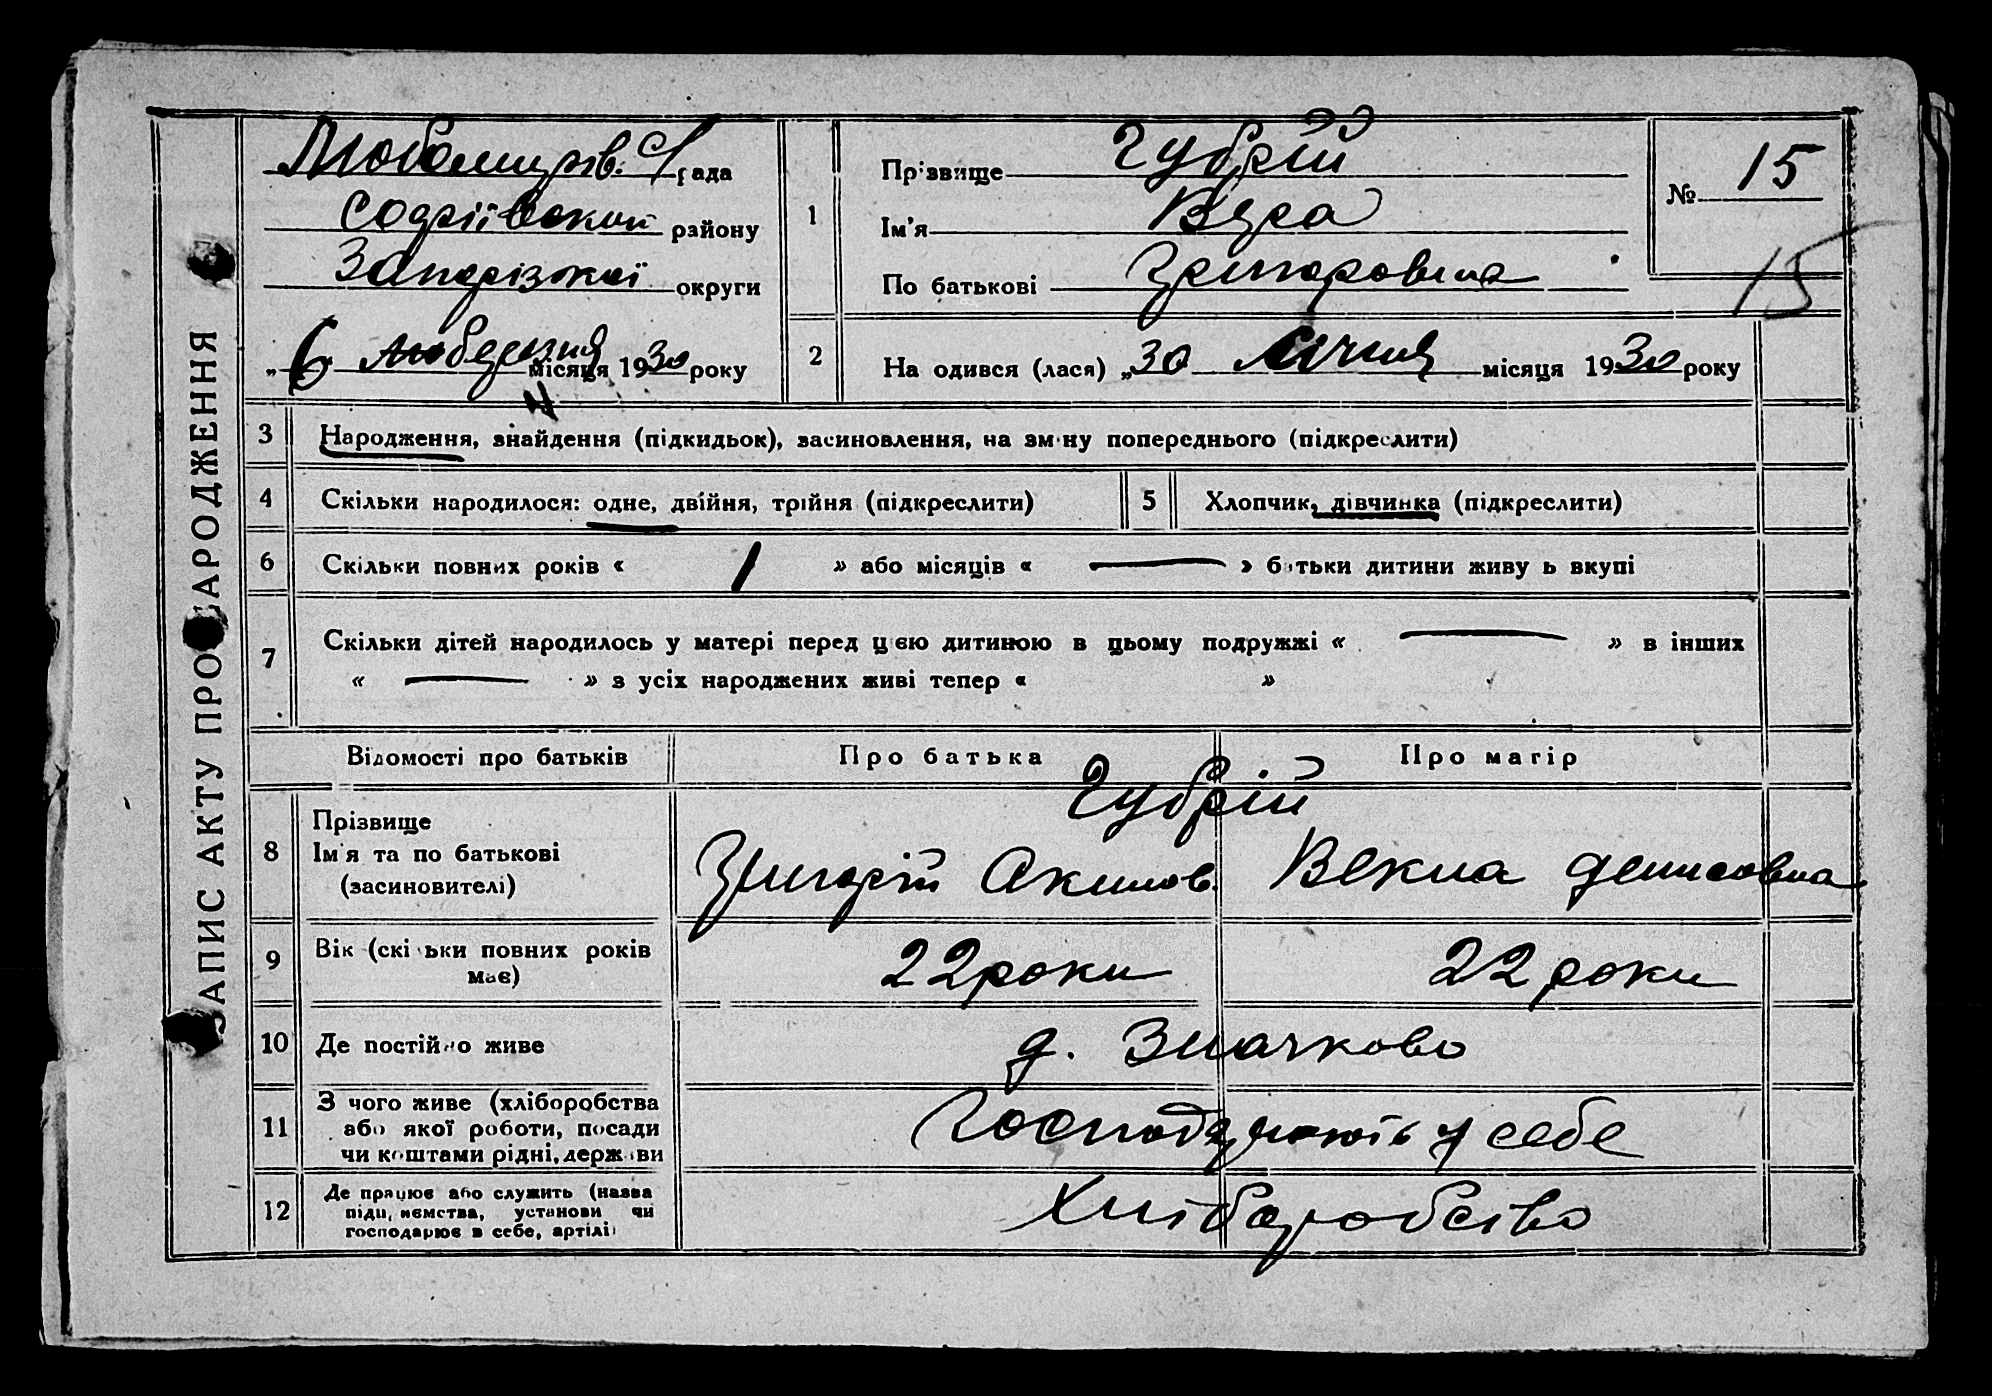 ЗАПИС АКТУ ПРО НАРОДЖЕННЯ
Любомирів. с/рада
Софіївской району
Запорізкої округи
„6 березня місяця 1930 року
1
Прізвище Губрій
Ім'я Вера
По батькові Григоровна
№ 15
15
2
На одився (лася) „30 Січня місяця 1930 року
3 Народження, знайдення (підкидьок), засиновлення, на зміну попереднього (підкреслити)
4 Скільки народилося: одне, двійня, трійня (підкреслити)
5 Хлопчик, дівчинка (підкреслити)
6 Скільки повних років « 1 » або місяців « — » батьки дитини живу ь вкупі
7 Скільки дітей народилось у матері перед цією дитиною в цьому подружжі « — » в інших
« — » з усіх народжених живі тепер « »
Відомості про батьків Про батька Про матір
8 Прізвище
Ім'я та по батькові
(засиновителі)
Губрій
Григорій Акимов. Векла Денисовна
9 Вік (скі ьки повних років
має)
22 роки 22 роки
10 Де постійно живе д. Значково
11 З чого живе (хліборобства
або якої роботи, посади
чи коштами рідні, держави
Господарюють у себе
12 Де працює або служить (назва
підприємства, установи чи
господарює в себе, артілі)
Хліборобство